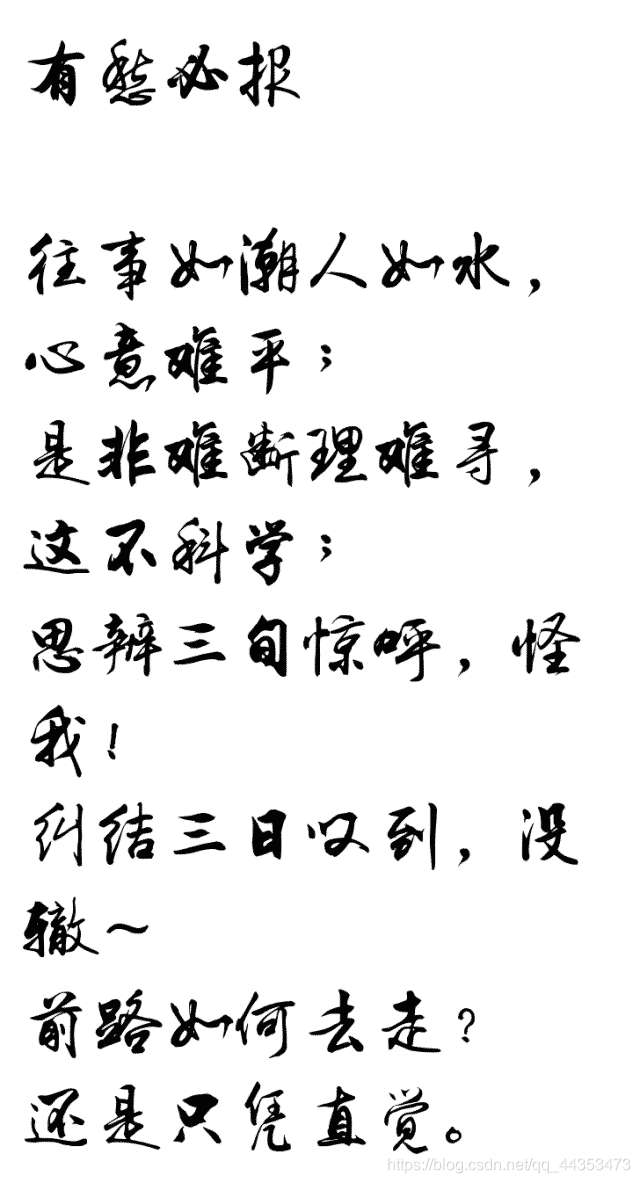 有愁必报
往事如潮人如水，
心意难平；
是非难断理难寻，
这不科学；
思辨三旬惊呼，怪
我！
纠结三日叹到，没
辙～
前路如何去走？
还是只凭直觉。
https://blog.csdn.net/qq_44353473